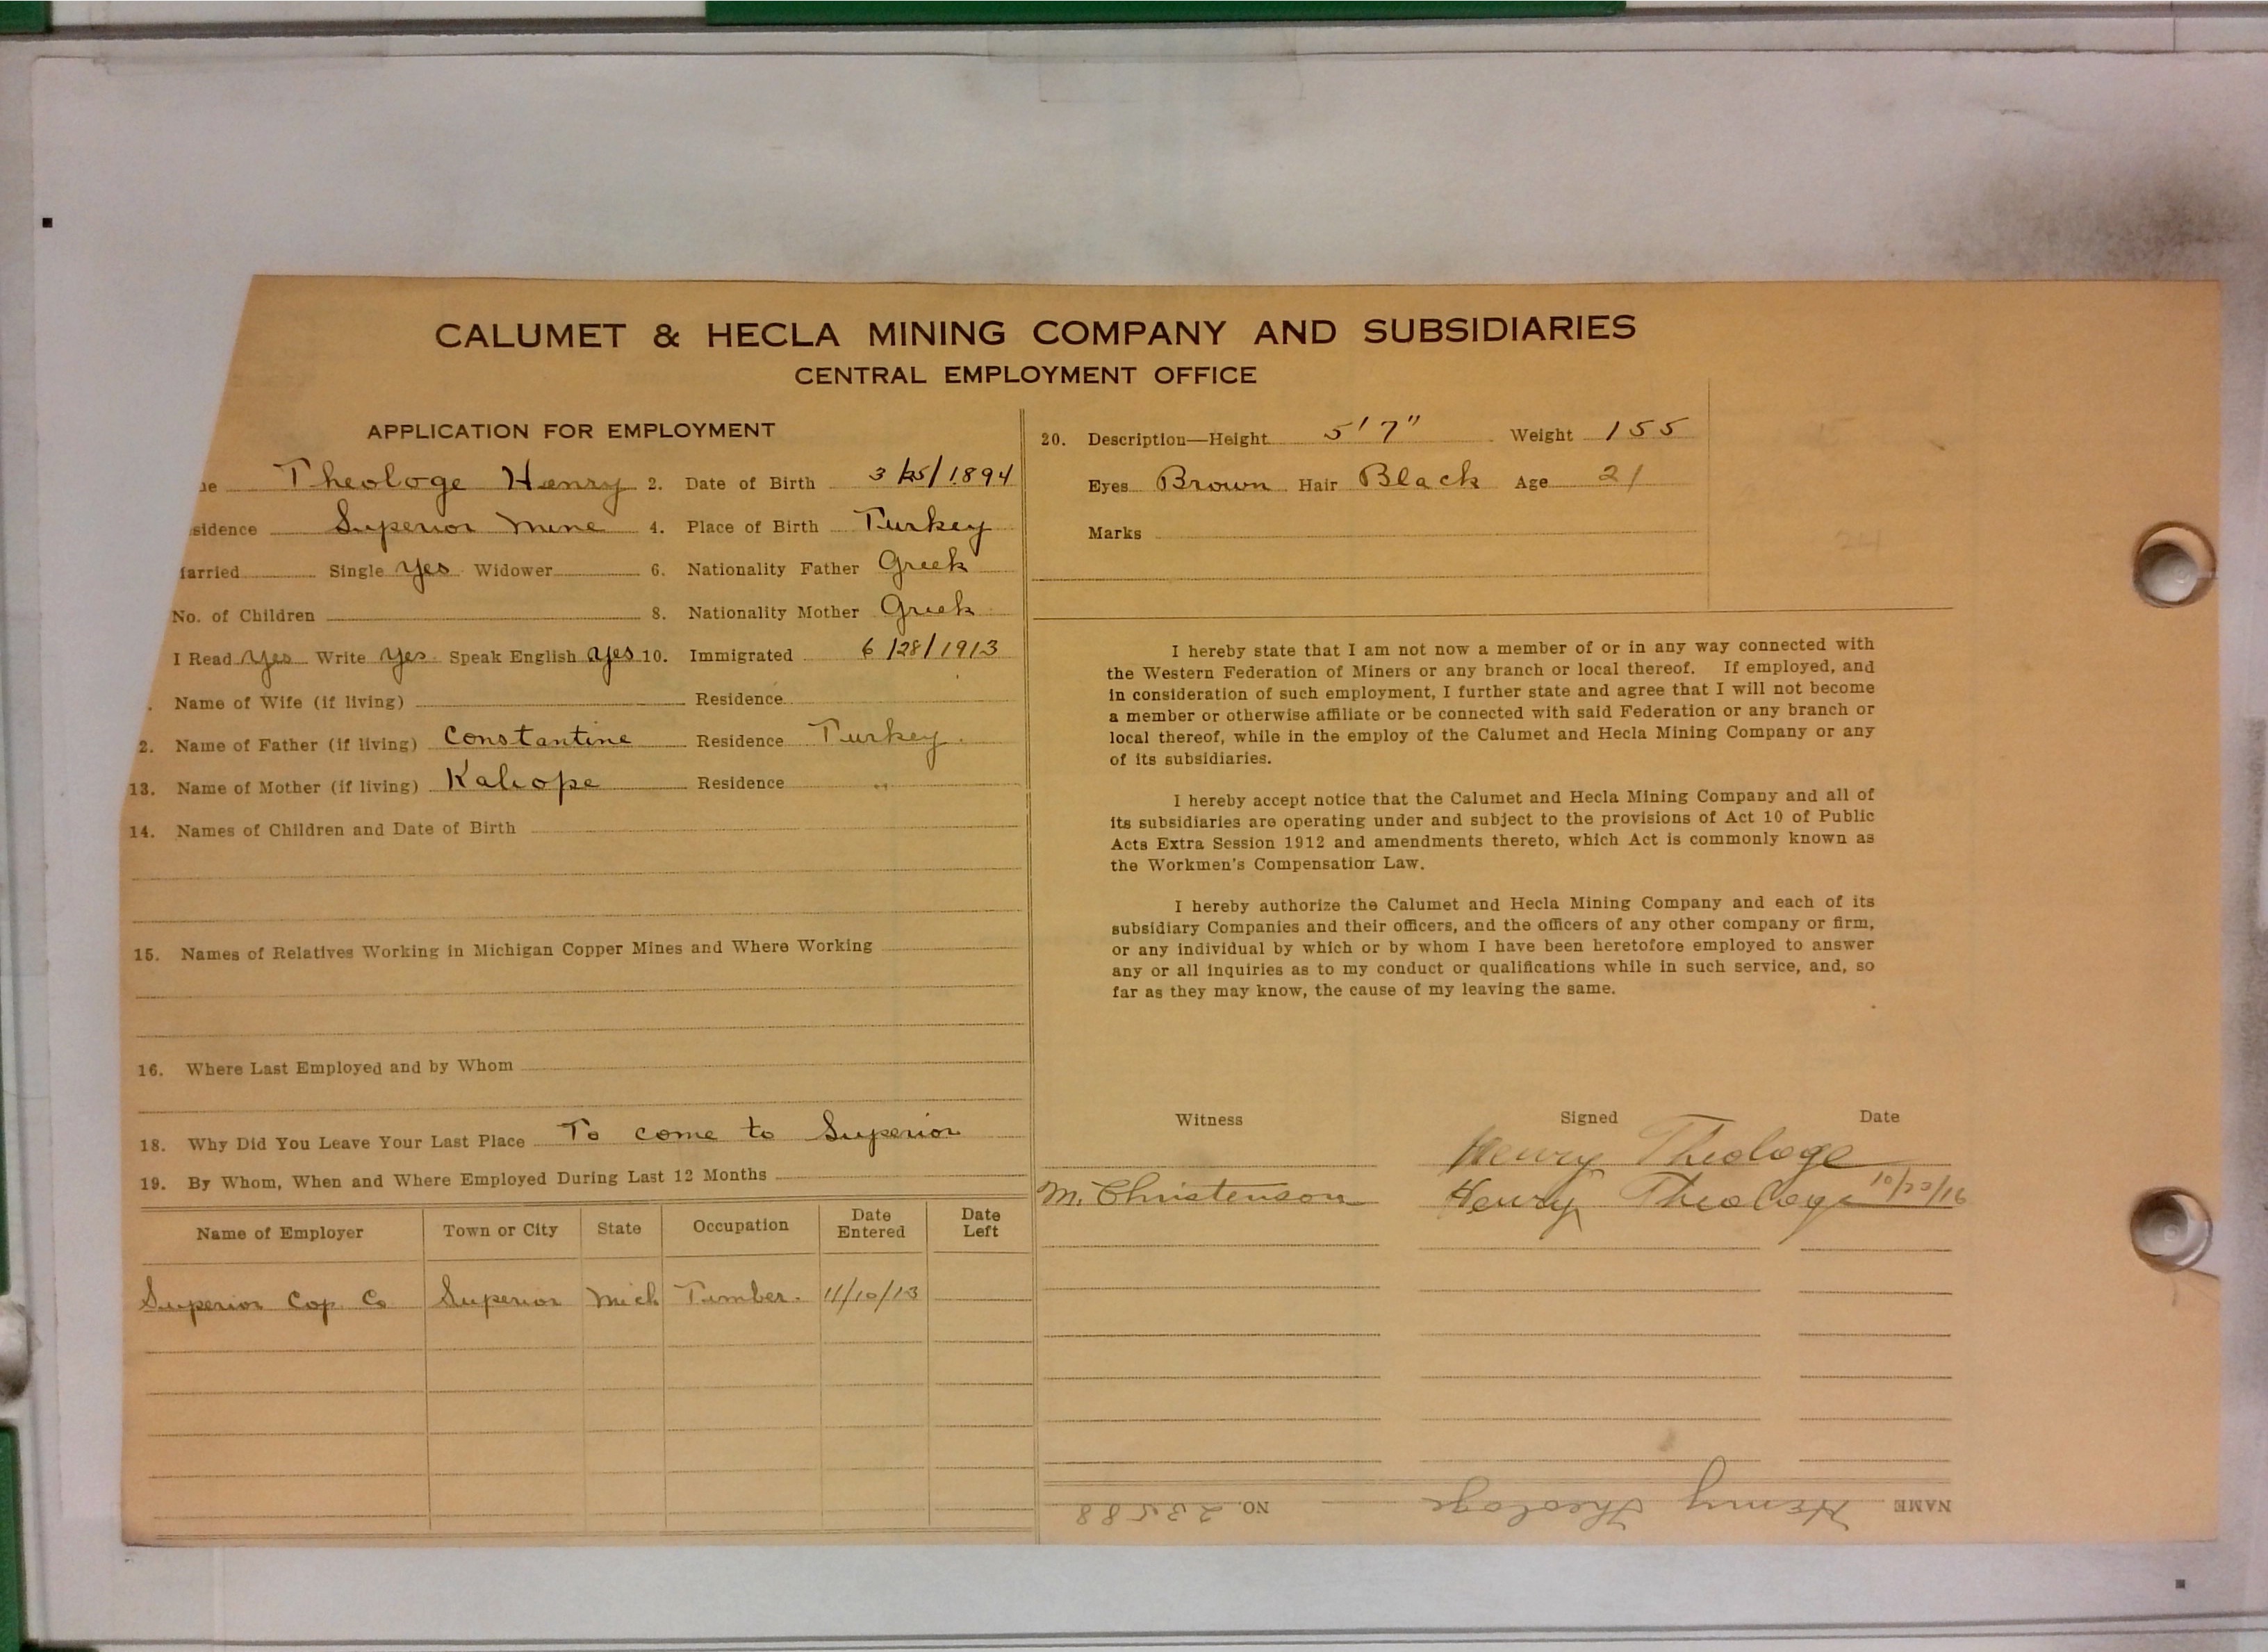 CALUMET & HECLA MINING COMPANY AND SUBSIDIARIES
CENTRAL EMPLOYMENT OFFICE
APPLICATION FOR EMPLOYMENT
Theologe Henry 2. Date of Birth 3/25/1894
sidence Superior Mine 4. Place of Birth Turkey
arried Single yes Widower 6. Nationality Father Greek
No. of Children 8. Nationality Mother Greek
I Read yes Write yes Speak English yes 10. Immigrated 6/28/1913
. Name of Wife (if living) Residence
2. Name of Father (if living) Constantine Residence Turkey.
13. Name of Mother (if living) Kaliope Residence "
14. Names of Children and Date of Birth
15. Names of Relatives Working in Michigan Copper Mines and Where Working
16. Where Last Employed and by Whom
18. Why Did You Leave Your Last Place To come to Superior
19. By Whom, When and Where Employed During Last 12 Months
Name of Employer Town or City State Occupation Date Entered Date Left
Superior Cop. Co Superior Mich Timber. 11/10/13
20. Description—Height 5'7" Weight 155
Eyes Brown Hair Black Age 21
Marks
I hereby state that I am not now a member of or in any way connected with
the Western Federation of Miners or any branch or local thereof. If employed, and
in consideration of such employment, I further state and agree that I will not become
a member or otherwise affiliate or be connected with said Federation or any branch or
local thereof, while in the employ of the Calumet and Hecla Mining Company or any
of its subsidiaries.
I hereby accept notice that the Calumet and Hecla Mining Company and all of
its subsidiaries are operating under and subject to the provisions of Act 10 of Public
Acts Extra Session 1912 and amendments thereto, which Act is commonly known as
the Workmen's Compensation Law.
I hereby authorize the Calumet and Hecla Mining Company and each of its
subsidiary Companies and their officers, and the officers of any other company or firm,
or any individual by which or by whom I have been heretofore employed to answer
any or all inquiries as to my conduct or qualifications while in such service, and, so
far as they may know, the cause of my leaving the same.
Witness Signed Date
Henry Theologe
M. Christenson Henry Theologe 10/23/16
NAME Henry Theologe NO. 23588